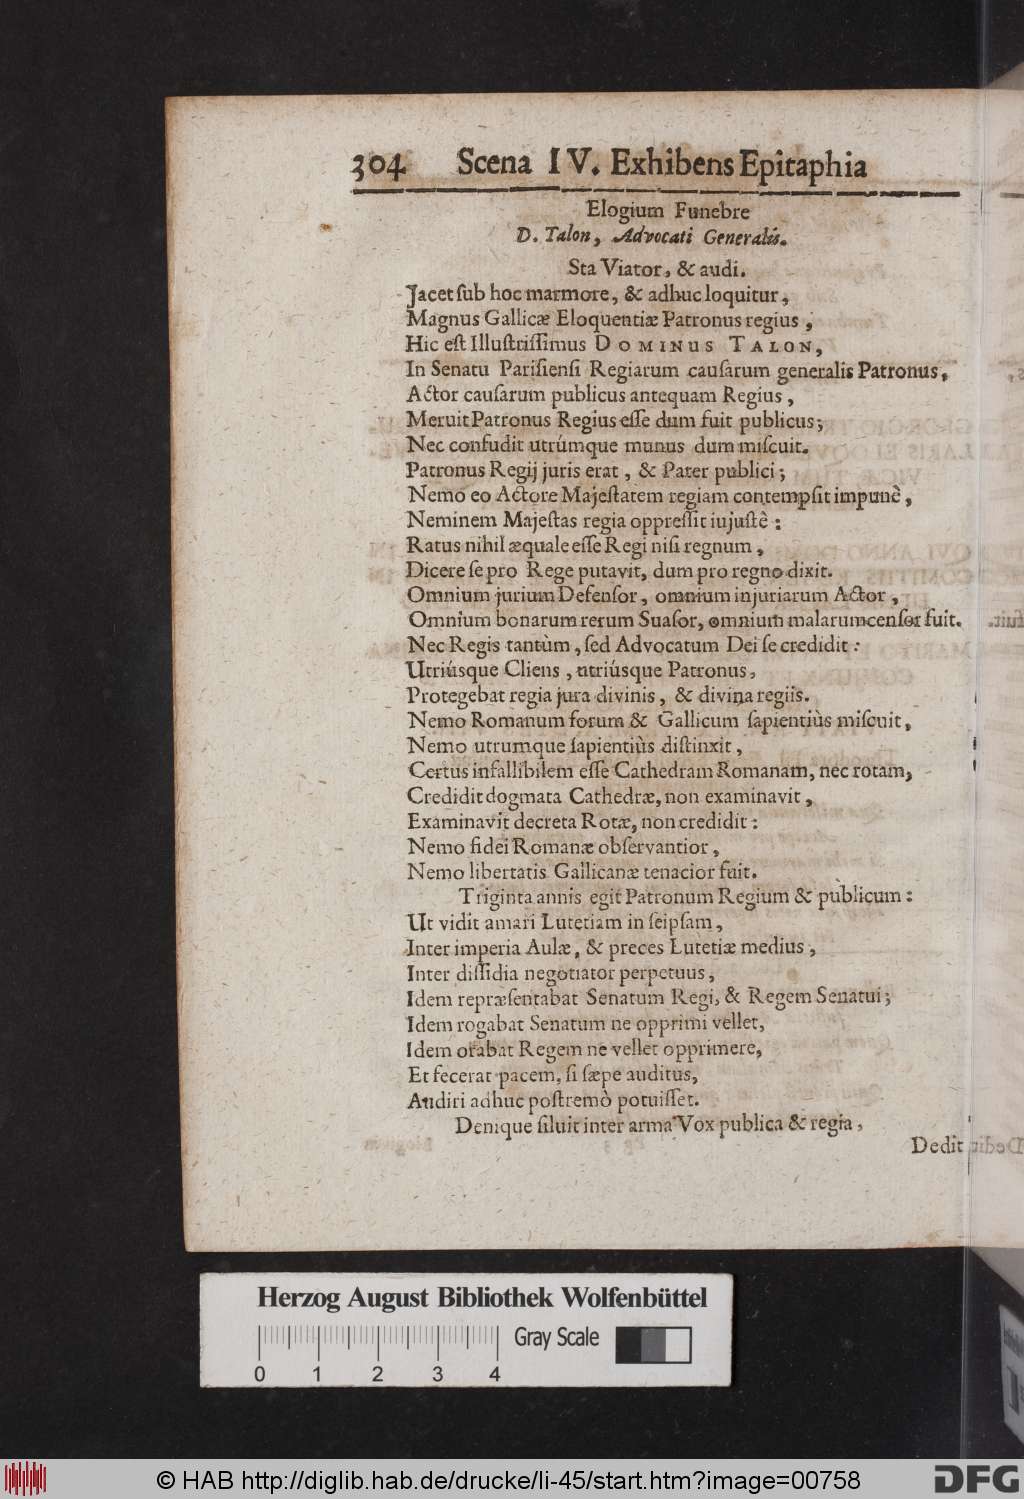 304 Scena IV. Exhibens Epitaphia
Elogium Funebre
D. Talon, Advocati Generalis.
Sta Viator, & audi.
Jacet sub hoc marmore, & adhuc loquitur,
Magnus Gallicæ Eloquentiæ Patronus regius,
Hic est Illustrissimus DOMINUS TALON,
In Senatu Parisiensi Regiarum causarum generalis Patronus,
Actor causarum publicus antequam Regius,
Meruit Patronus Regius esse dum fuit publicus;
Nec confudit utrúmque munus dum miscuit.
Patronus Regij juris erat, & Pater publici;
Nemo eo Actore Majestatem regiam contempsit impunè,
Neminem Majestas regia oppressit iujustè:
Ratus nihil æquale esse Regi nisi regnum,
Dicere se pro Rege putavit, dum pro regno dixit.
Omnium jurium Defensor, omnium injuriarum Actor,
Omnium bonarum rerum Suasor, omnium malarum censor fuit.
Nec Regis tantùm, sed Advocatum Dei se credidit:
Utriúsque Cliens, utriúsque Patronus,
Protegebat regia jura divinis, & divina regiis.
Nemo Romanum forum & Gallicum sapientiùs miscuit,
Nemo utrumque sapientiùs distinxit,
Certus infallibilem esse Cathedram Romanam, nec rotam,
Credidit dogmata Cathedræ, non examinavit,
Examinavit decreta Rotæ, non credidit:
Nemo fidei Romanæ observantior,
Nemo libertatis Gallicanæ tenacior fuit.
Triginta annis egit Patronum Regium & publicum:
Ut vidit amari Lutetiam in seipsam,
Inter imperia Aulæ, & preces Lutetiæ medius,
Inter dissidia negotiator perpetuus,
Idem repræsentabat Senatum Regi, & Regem Senatui;
Idem rogabat Senatum ne opprimi vellet,
Idem orabat Regem ne vellet opprimere,
Et fecerat pacem, si sæpe auditus,
Audiri adhuc postremò potuisset.
Denique siluit inter arma Vox publica & regia,
Dedit
Herzog August Bibliothek Wolfenbüttel
Gray Scale
0 1 2 3 4
© HAB http://diglib.hab.de/drucke/li-45/start.htm?image=00758
DFG